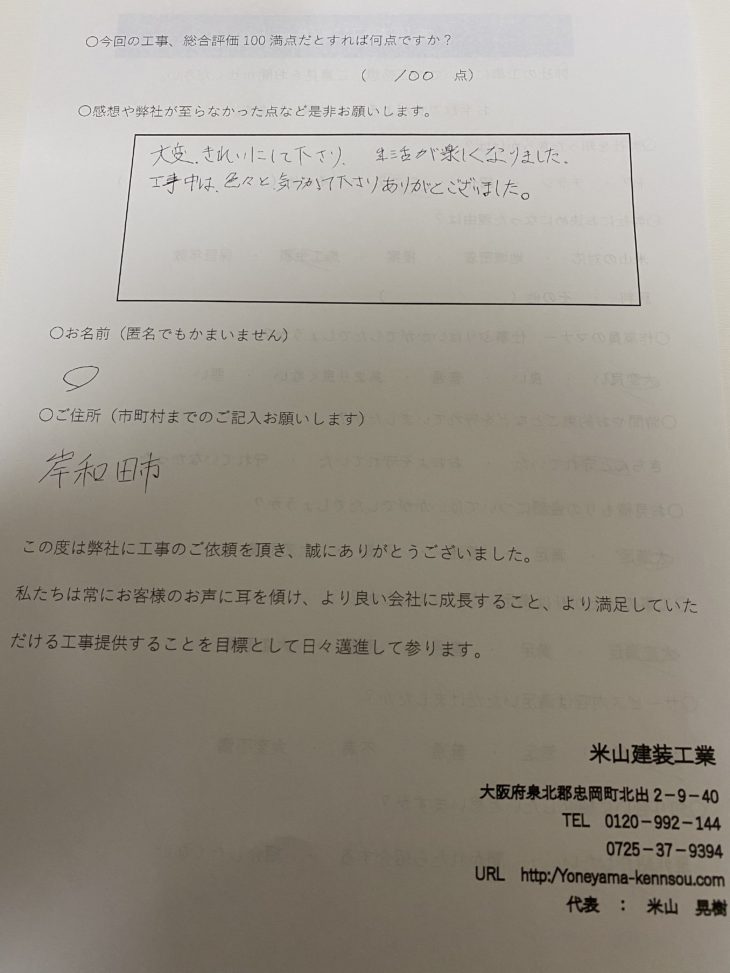 〇今回の工事、総合評価100満点だとすれば何点ですか？
（ 100 点）
〇感想や弊社が至らなかった点など是非お願いします。
大変、きれいにして下さり、生活が楽しくなりました、
工事中は、色々と気づかって下さりありがとございました。
〇お名前（匿名でもかまいません）
〇ご住所（市町村までのご記入お願いします）
岸和田市
この度は弊社に工事のご依頼を頂き、誠にありがとうございました。
私たちは常にお客様のお声に耳を傾け、より良い会社に成長すること、より満足していた
だける工事提供することを目標として日々邁進して参ります。
米山建装工業
大阪府泉北郡忠岡町北出2－9－40
TEL 0120－992－144
0725－37－9394
URL http:/Yoneyama-kennsou.com
代表 ： 米山 晃樹